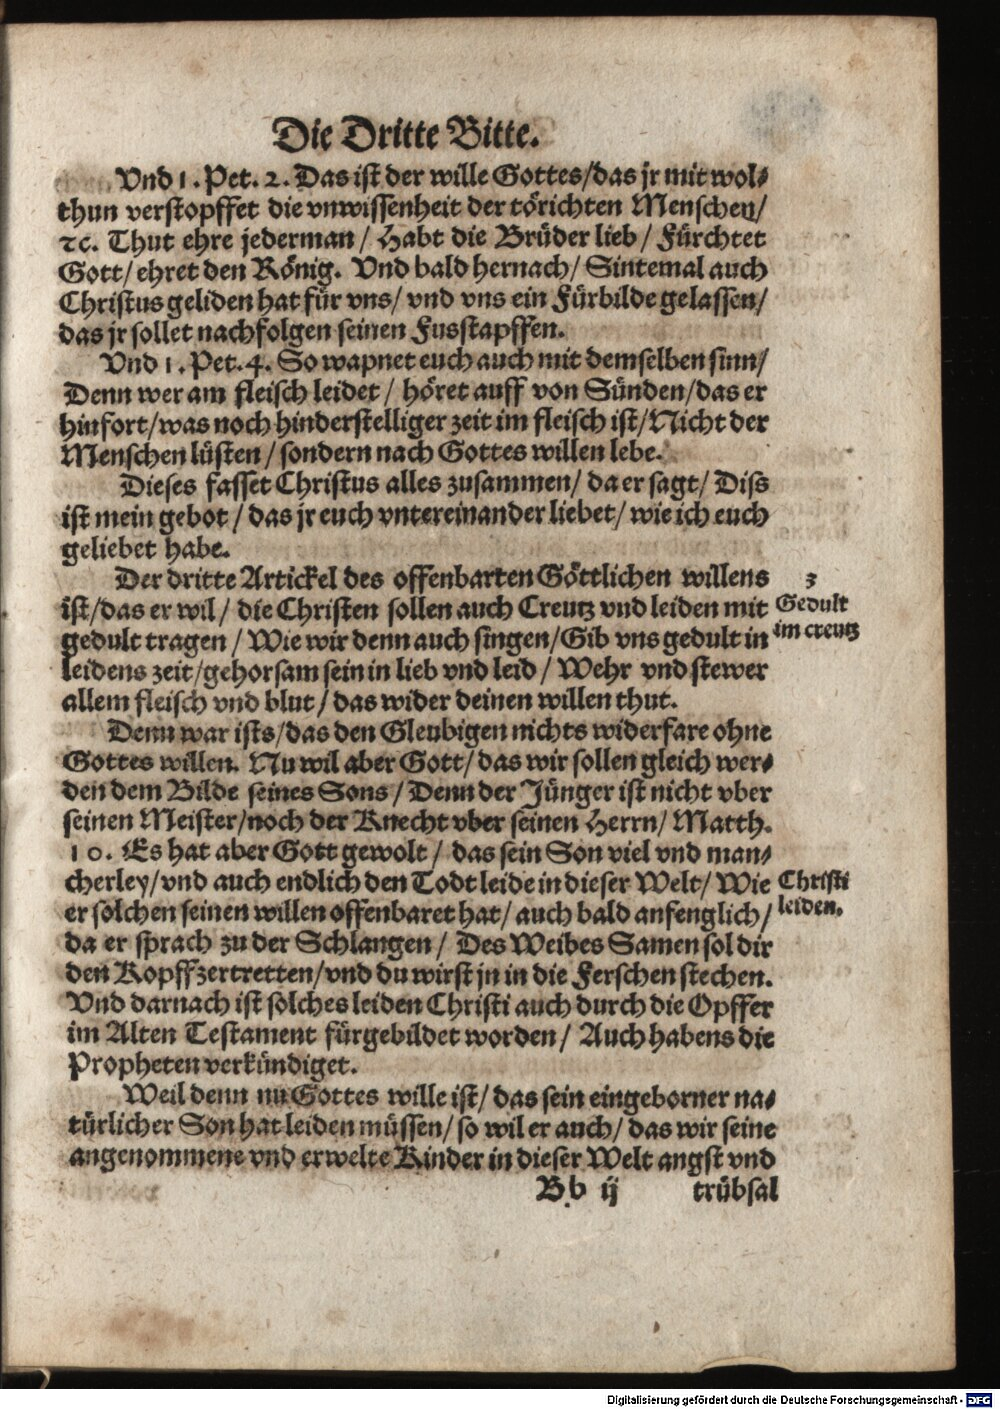 Die Dritte Bitte.
Vnd 1. Pet. 2. Das ist der wille Gottes/das jr mit wol-
thun verstopffet die vnwissenheit der törichten Menschen/
ꝛc. Thut ehre jederman/ Habt die Brüder lieb/ Fürchtet
Gott/ ehret den König. Vnd bald hernach/ Sintemal auch
Christus geliden hat für vns/ vnd vns ein Fürbilde gelassen/
das jr sollet nachfolgen seinen Fusstapffen.
Vnd 1. Pet. 4. So wapnet euch auch mit demselben sinn/
Denn wer am fleisch leidet/ höret auff von Sünden/das er
hinfort/was noch hinderstelliger zeit im fleisch ist/Nicht der
Menschen lüsten/ sondern nach Gottes willen lebe.
Dieses fasset Christus alles zusammen/ da er sagt/ Diss
ist mein gebot/ das jr euch vntereinander liebet/ wie ich euch
geliebet habe.
Der dritte Artickel des offenbarten Göttlichen willens
ist/das er wil/ die Christen sollen auch Creutz vnd leiden mit
gedult tragen/ Wie wir denn auch singen/Gib vns gedult in
leidens zeit/gehorsam sein in lieb vnd leid/ Wehr vnd stewer
allem fleisch vnd blut/ das wider deinen willen thut.
3
Gedult
im creutz
Denn war ists/das den Gleubigen nichts widerfare ohne
Gottes willen. Nu wil aber Gott/ das wir sollen gleich wer-
den dem Bilde seines Sons/ Denn der Jünger ist nicht vber
seinen Meister/noch der Knecht vber seinen Herrn/ Matth.
10. Es hat aber Gott gewolt/ das sein Son viel vnd man-
cherley/vnd auch endlich den Todt leide in dieser Welt/ Wie
er solchen seinen willen offenbaret hat/ auch bald anfenglich/
da er sprach zu der Schlangen/ Des Weibes Samen sol dir
den Kopff zertretten/vnd du wirst jn in die Ferschen stechen.
Vnd darnach ist solches leiden Christi auch durch die Opffer
im Alten Testament fürgebildet worden/ Auch habens die
Propheten verkündiget.
Christi
leiden.
Weil denn nu Gottes wille ist/ das sein eingeborner na-
türlicher Son hat leiden müssen/ so wil er auch/ das wir seine
angenommene vnd erwelte Kinder in dieser Welt angst vnd
Bb ij trübsal
Digitalisierung gefördert durch die Deutsche Forschungsgemeinschaft - DFG